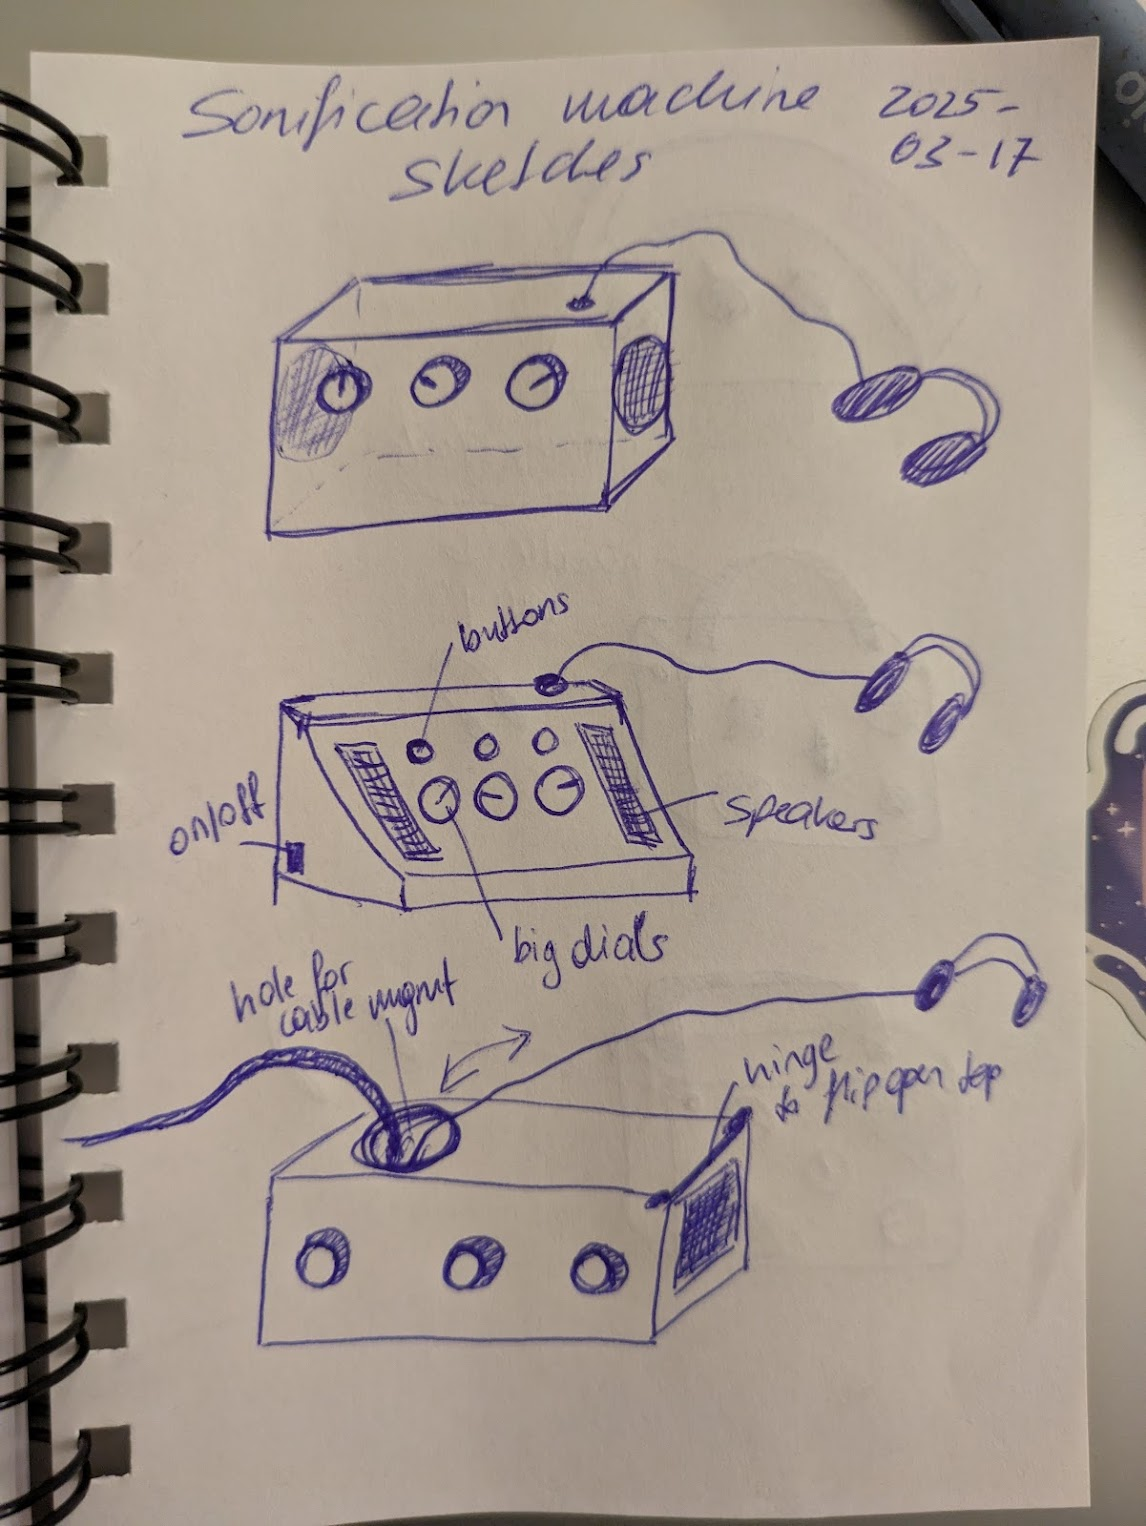 Sonification machine
sketches
2025-
03-17
buttons
on/off
speakers
big dials
hole for
cable mgmt
hinge
to flip open top